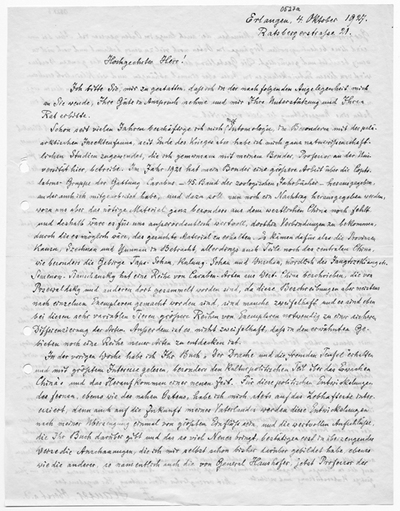 0527a
Erlangen, 4. Oktober 1927.
Ratsbergerstrasse 21.
Hochgeehrter Herr!
Ich bitte Sie, mir zu gestatten, dass ich in der nachfolgenden Angelegenheit mich
an Sie wende, Ihre Güte in Anspruch nehme und mir Ihre Unterstützung und Ihren
Rat erbitte.
Schon seit vielen Jahren beschäftige ich mich mit Entomologie, im Besonderen mit der palä-
arktischen Insektenfauna, seit Ende des Krieges aber habe ich mich ganz naturwissenschaft-
lichen Studien zugewendet, die ich gemeinsam mit meinem Bruder, Professor an der Uni-
versität hier, betreibe. Im Jahre 1926 hat mein Bruder eine grössere Arbeit über die
Gruppe der Gattung Carabus 45. Band der zoologischen Jahrbücher herausgegeben,
an der auch ich mitgearbeitet habe, und dazu soll nun noch ein Nachtrag herausgegeben werden,
wozu uns aber das nötige Material ganz besonders aus dem westlichen China noch fehlt
und deshalb wäre es für uns ausserordentlich wertvoll, dorthin Verbindungen zu bekommen,
durch die es ermöglicht wäre, das gesuchte Material zu erhalten. Es kämen dafür also die Provinzen
Kansu, Szechuan und Yunnan in Betracht, allerdings auch Teile noch des centralen China,
wie besonders die Gebirge
Semenow-Tianshansky hat eine Reihe von Caraben-Arten aus West-China beschrieben, die von
Przewalsky und anderen dort gesammelt worden sind, da diese Beschreibungen aber meistens
nach einzelnen Exemplaren gemacht worden sind, sind manche zweifelhaft und es sind eben
bei diesen sehr variablen Tieren grössere Reihen von Exemplaren notwendig zu einer sicheren
Differenzierung der Arten. Ausserdem ist es nicht zweifelhaft, dass in den erwähnten Ge-
bieten noch eine Reihe neuer Arten zu entdecken ist.
In der vorigen Woche habe ich Ihr Buch, "Der Drache und die fremden Teufel" erhalten
und mit grösstem Interesse gelesen, besonders den kulturpolitischen Teil über das Erwachen
China's und das Heraufkommen einer neuen Zeit. Für diese politischen Entwickelungen
des fernen, ebenso wie des nahen Ostens, habe ich mich stets auf das Lebhafteste inter-
essiert, denn auch auf die Zukunft meines Vaterlandes werden diese Entwickelungen
nach meiner Überzeugung einmal von grösstem Einfluss sein, und die wertvollen Aufschlüsse,
die Ihr Buch darüber gibt und das so viel Neues bringt, bestätigen erst in überzeugender
Weise die Anschauungen, die ich mir selbst schon bisher darüber gebildet habe, ebenso
wie die anderer, so namentlich auch die von General Haushofer, jetzt Professor der